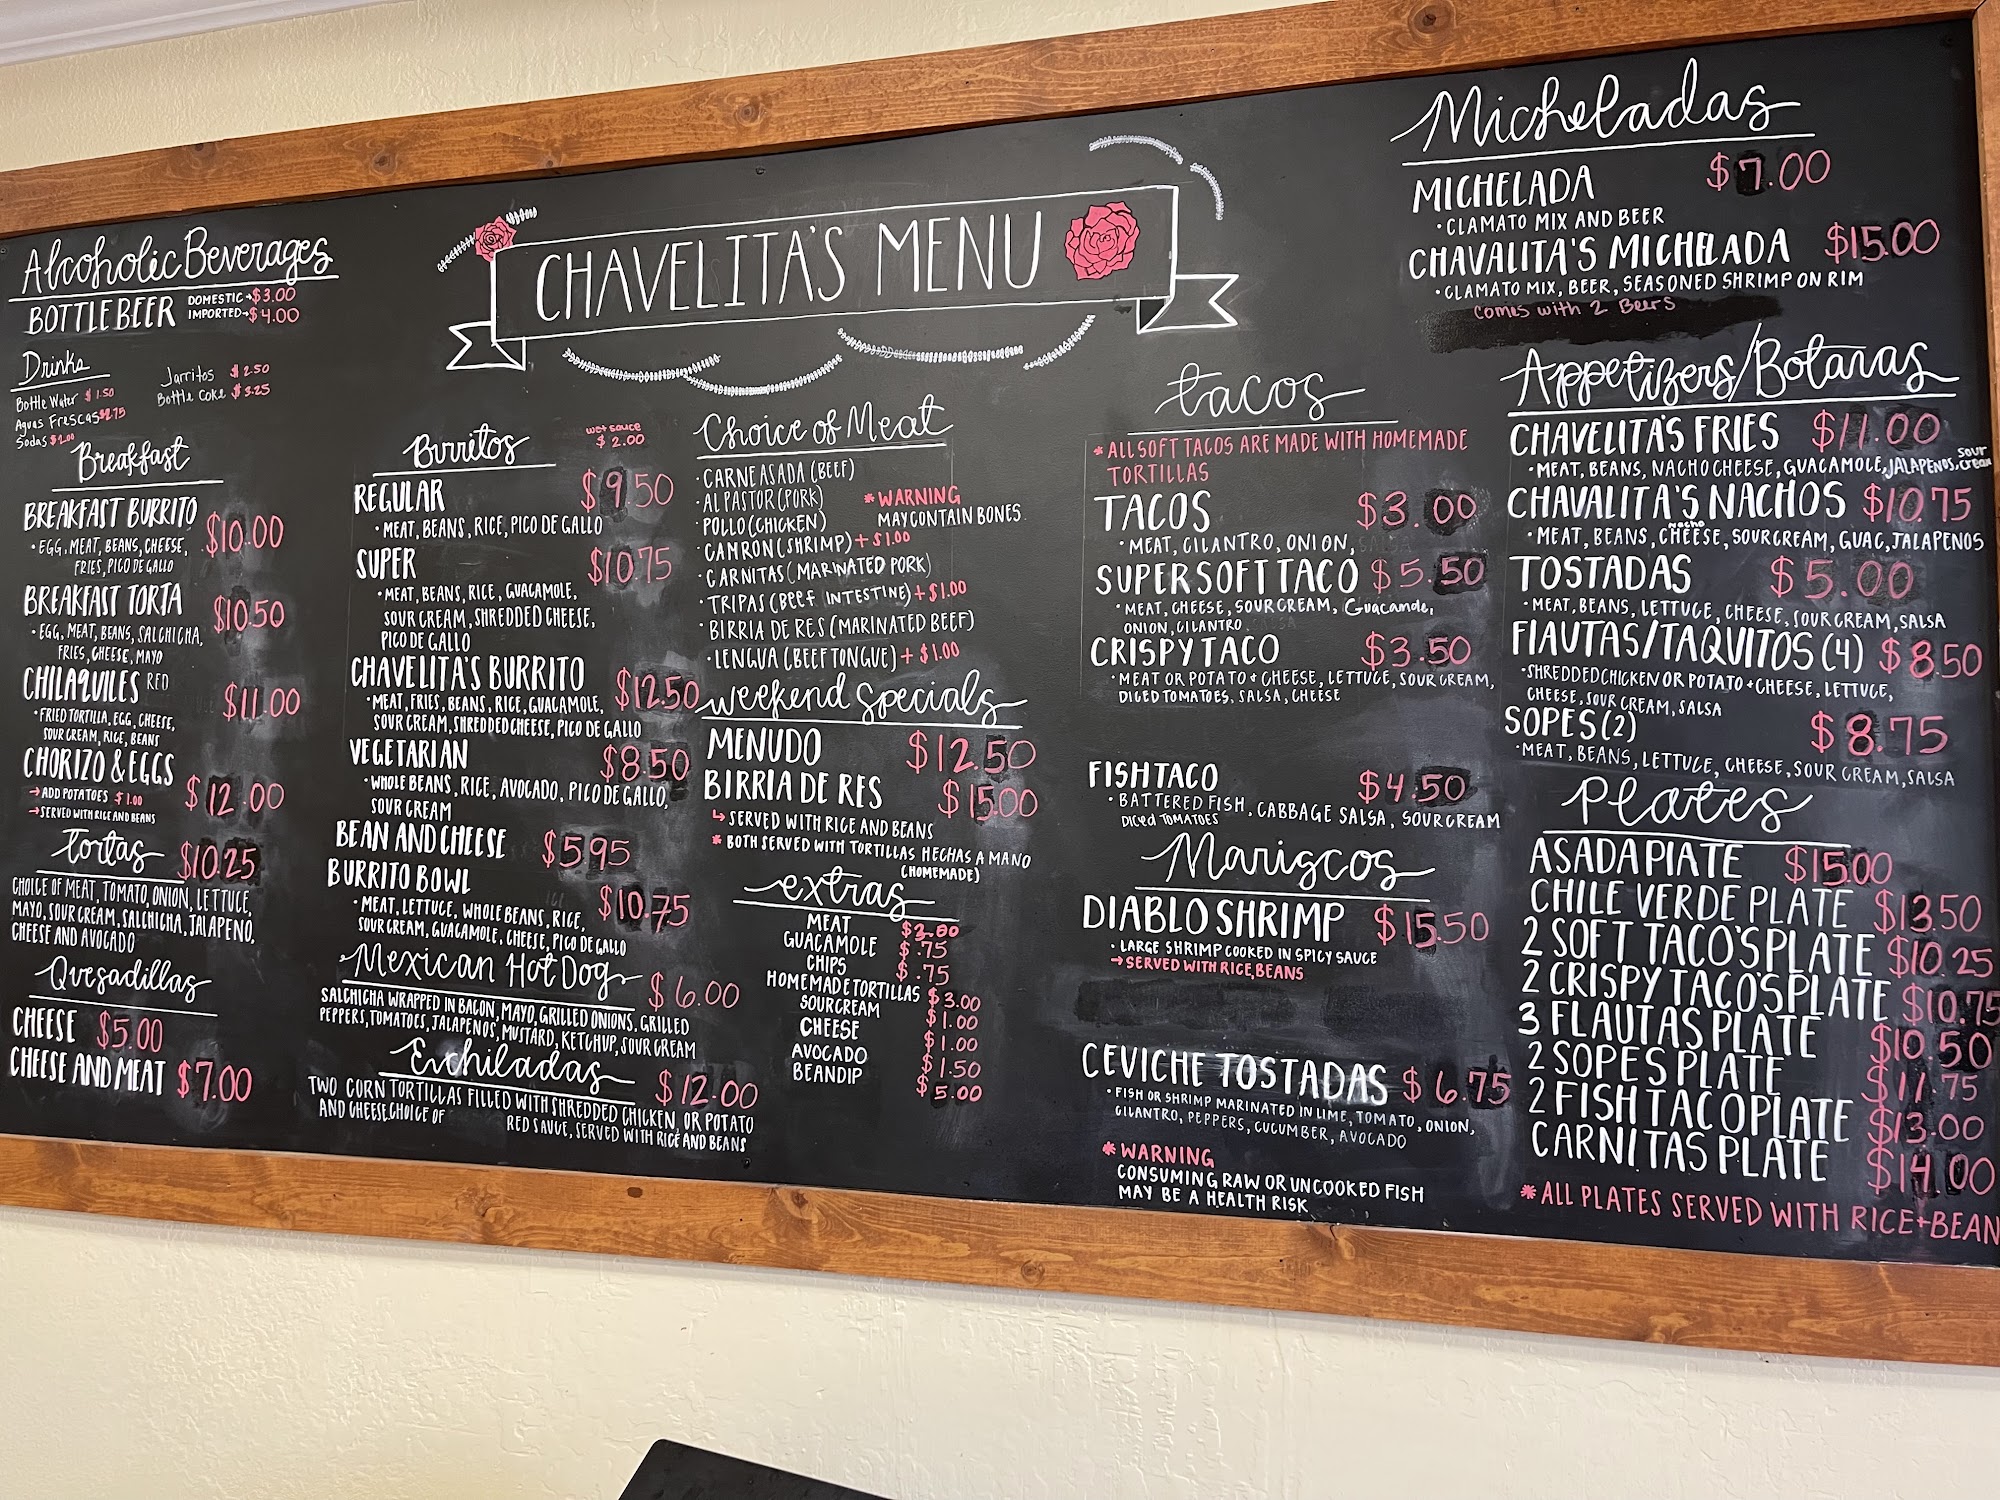 CHAVELITA'S MENU
Alcoholic Beverages
BOTTLE BEER DOMESTIC→$3.00
IMPORTED→$4.00
Drinks
Bottle Water $1.50
Aguas Frescas $2.75
Sodas $2.00
Jarritos $2.50
Bottle Coke $3.25
Breakfast
BREAKFAST BURRITO $10.00
• EGG, MEAT, BEANS, CHEESE,
FRIES, PICO DE GALLO
BREAKFAST TORTA $10.50
• EGG, MEAT, BEANS, SALCHICHA,
FRIES, CHEESE, MAYO
CHILAQUILES RED $11.00
• FRIED TORTILLA, EGG, CHEESE,
SOUR CREAM, RICE, BEANS
CHORIZO & EGGS $12.00
→ ADD POTATOES $1.00
→ SERVED WITH RICE AND BEANS
Tortas $10.25
CHOICE OF MEAT, TOMATO, ONION, LETTUCE,
MAYO, SOUR CREAM, SALCHICHA, JALAPENO,
CHEESE AND AVOCADO
Quesadillas
CHEESE $5.00
CHEESE AND MEAT $7.00
Burritos
wet sauce
$2.00
REGULAR $9.50
• MEAT, BEANS, RICE, PICO DE GALLO
SUPER $10.75
• MEAT, BEANS, RICE, GUACAMOLE,
SOUR CREAM, SHREDDED CHEESE,
PICO DE GALLO
CHAVELITA'S BURRITO $12.50
• MEAT, FRIES, BEANS, RICE, GUACAMOLE,
SOUR CREAM, SHREDDED CHEESE, PICO DE GALLO
VEGETARIAN $8.50
• WHOLE BEANS, RICE, AVOCADO, PICO DE GALLO,
SOUR CREAM
BEAN AND CHEESE $5.95
BURRITO BOWL $10.75
• MEAT, LETTUCE, WHOLE BEANS, RICE,
SOUR CREAM, GUACAMOLE, CHEESE, PICO DE GALLO
Mexican Hot Dog $6.00
SALCHICHA WRAPPED IN BACON, MAYO, GRILLED ONIONS, GRILLED
PEPPERS, TOMATOES, JALAPENOS, MUSTARD, KETCHUP, SOUR CREAM
Enchiladas $12.00
TWO CORN TORTILLAS FILLED WITH SHREDDED CHICKEN, OR POTATO
AND CHEESE, CHOICE OF RED SAUCE, SERVED WITH RICE AND BEANS
Choice of Meat
• CARNE ASADA (BEEF)
• AL PASTOR (PORK)
• POLLO (CHICKEN)
* WARNING
MAY CONTAIN BONES.
• CAMRON (SHRIMP) + $1.00
• CARNITAS (MARINATED PORK)
• TRIPAS (BEEF INTESTINE) + $1.00
• BIRRIA DE RES (MARINATED BEEF)
• LENGUA (BEEF TONGUE) + $1.00
Weekend Specials
MENUDO $12.50
BIRRIA DE RES $15.00
↳ SERVED WITH RICE AND BEANS
* BOTH SERVED WITH TORTILLAS HECHAS A MANO
(HOMEMADE)
extras
MEAT $3.00
GUACAMOLE $.75
CHIPS $.75
HOMEMADE TORTILLAS $3.00
SOUR CREAM $1.00
CHEESE $1.00
AVOCADO $1.50
BEAN DIP $5.00
tacos
* ALL SOFT TACOS ARE MADE WITH HOMEMADE
TORTILLAS
TACOS $3.00
• MEAT, CILANTRO, ONION,
SUPER SOFT TACO $5.50
• MEAT, CHEESE, SOUR CREAM, Guacamole,
ONION, CILANTRO
CRISPY TACO $3.50
• MEAT OR POTATO + CHEESE, LETTUCE, SOUR CREAM,
DICED TOMATOES, SALSA, CHEESE
FISH TACO $4.50
• BATTERED FISH, CABBAGE SALSA, SOUR CREAM
Diced TOMATOES
Mariscos
DIABLO SHRIMP $15.50
• LARGE SHRIMP COOKED IN SPICY SAUCE
→ SERVED WITH RICE, BEANS
CEVICHE TOSTADAS $6.75
• FISH OR SHRIMP MARINATED IN LIME, TOMATO, ONION,
CILANTRO, PEPPERS, CUCUMBER, AVOCADO
* WARNING
CONSUMING RAW OR UNCOOKED FISH
MAY BE A HEALTH RISK
Micheladas
MICHELADA $7.00
• CLAMATO MIX AND BEER
CHAVALITA'S MICHELADA $15.00
• CLAMATO MIX, BEER, SEASONED SHRIMP ON RIM
Comes with 2 Beers
Appetizers/Botanas
CHAVELITA'S FRIES $11.00
• MEAT, BEANS, NACHO CHEESE, GUACAMOLE, JALAPENOS, sour cream
CHAVALITA'S NACHOS $10.75
• MEAT, BEANS, Nacho CHEESE, SOUR CREAM, GUAC, JALAPENOS
TOSTADAS $5.00
• MEAT, BEANS, LETTUCE, CHEESE, SOUR CREAM, SALSA
FLAUTAS/TAQUITOS (4) $8.50
• SHREDDED CHICKEN OR POTATO + CHEESE, LETTUCE,
CHEESE, SOUR CREAM, SALSA
SOPES (2) $8.75
• MEAT, BEANS, LETTUCE, CHEESE, SOUR CREAM, SALSA
Plates
ASADA PLATE $15.00
CHILE VERDE PLATE $13.50
2 SOFT TACO'S PLATE $10.25
2 CRISPY TACO'S PLATE $10.75
3 FLAUTAS PLATE $10.50
2 SOPES PLATE $11.75
2 FISH TACO PLATE $13.00
CARNITAS PLATE $14.00
* ALL PLATES SERVED WITH RICE + BEAN